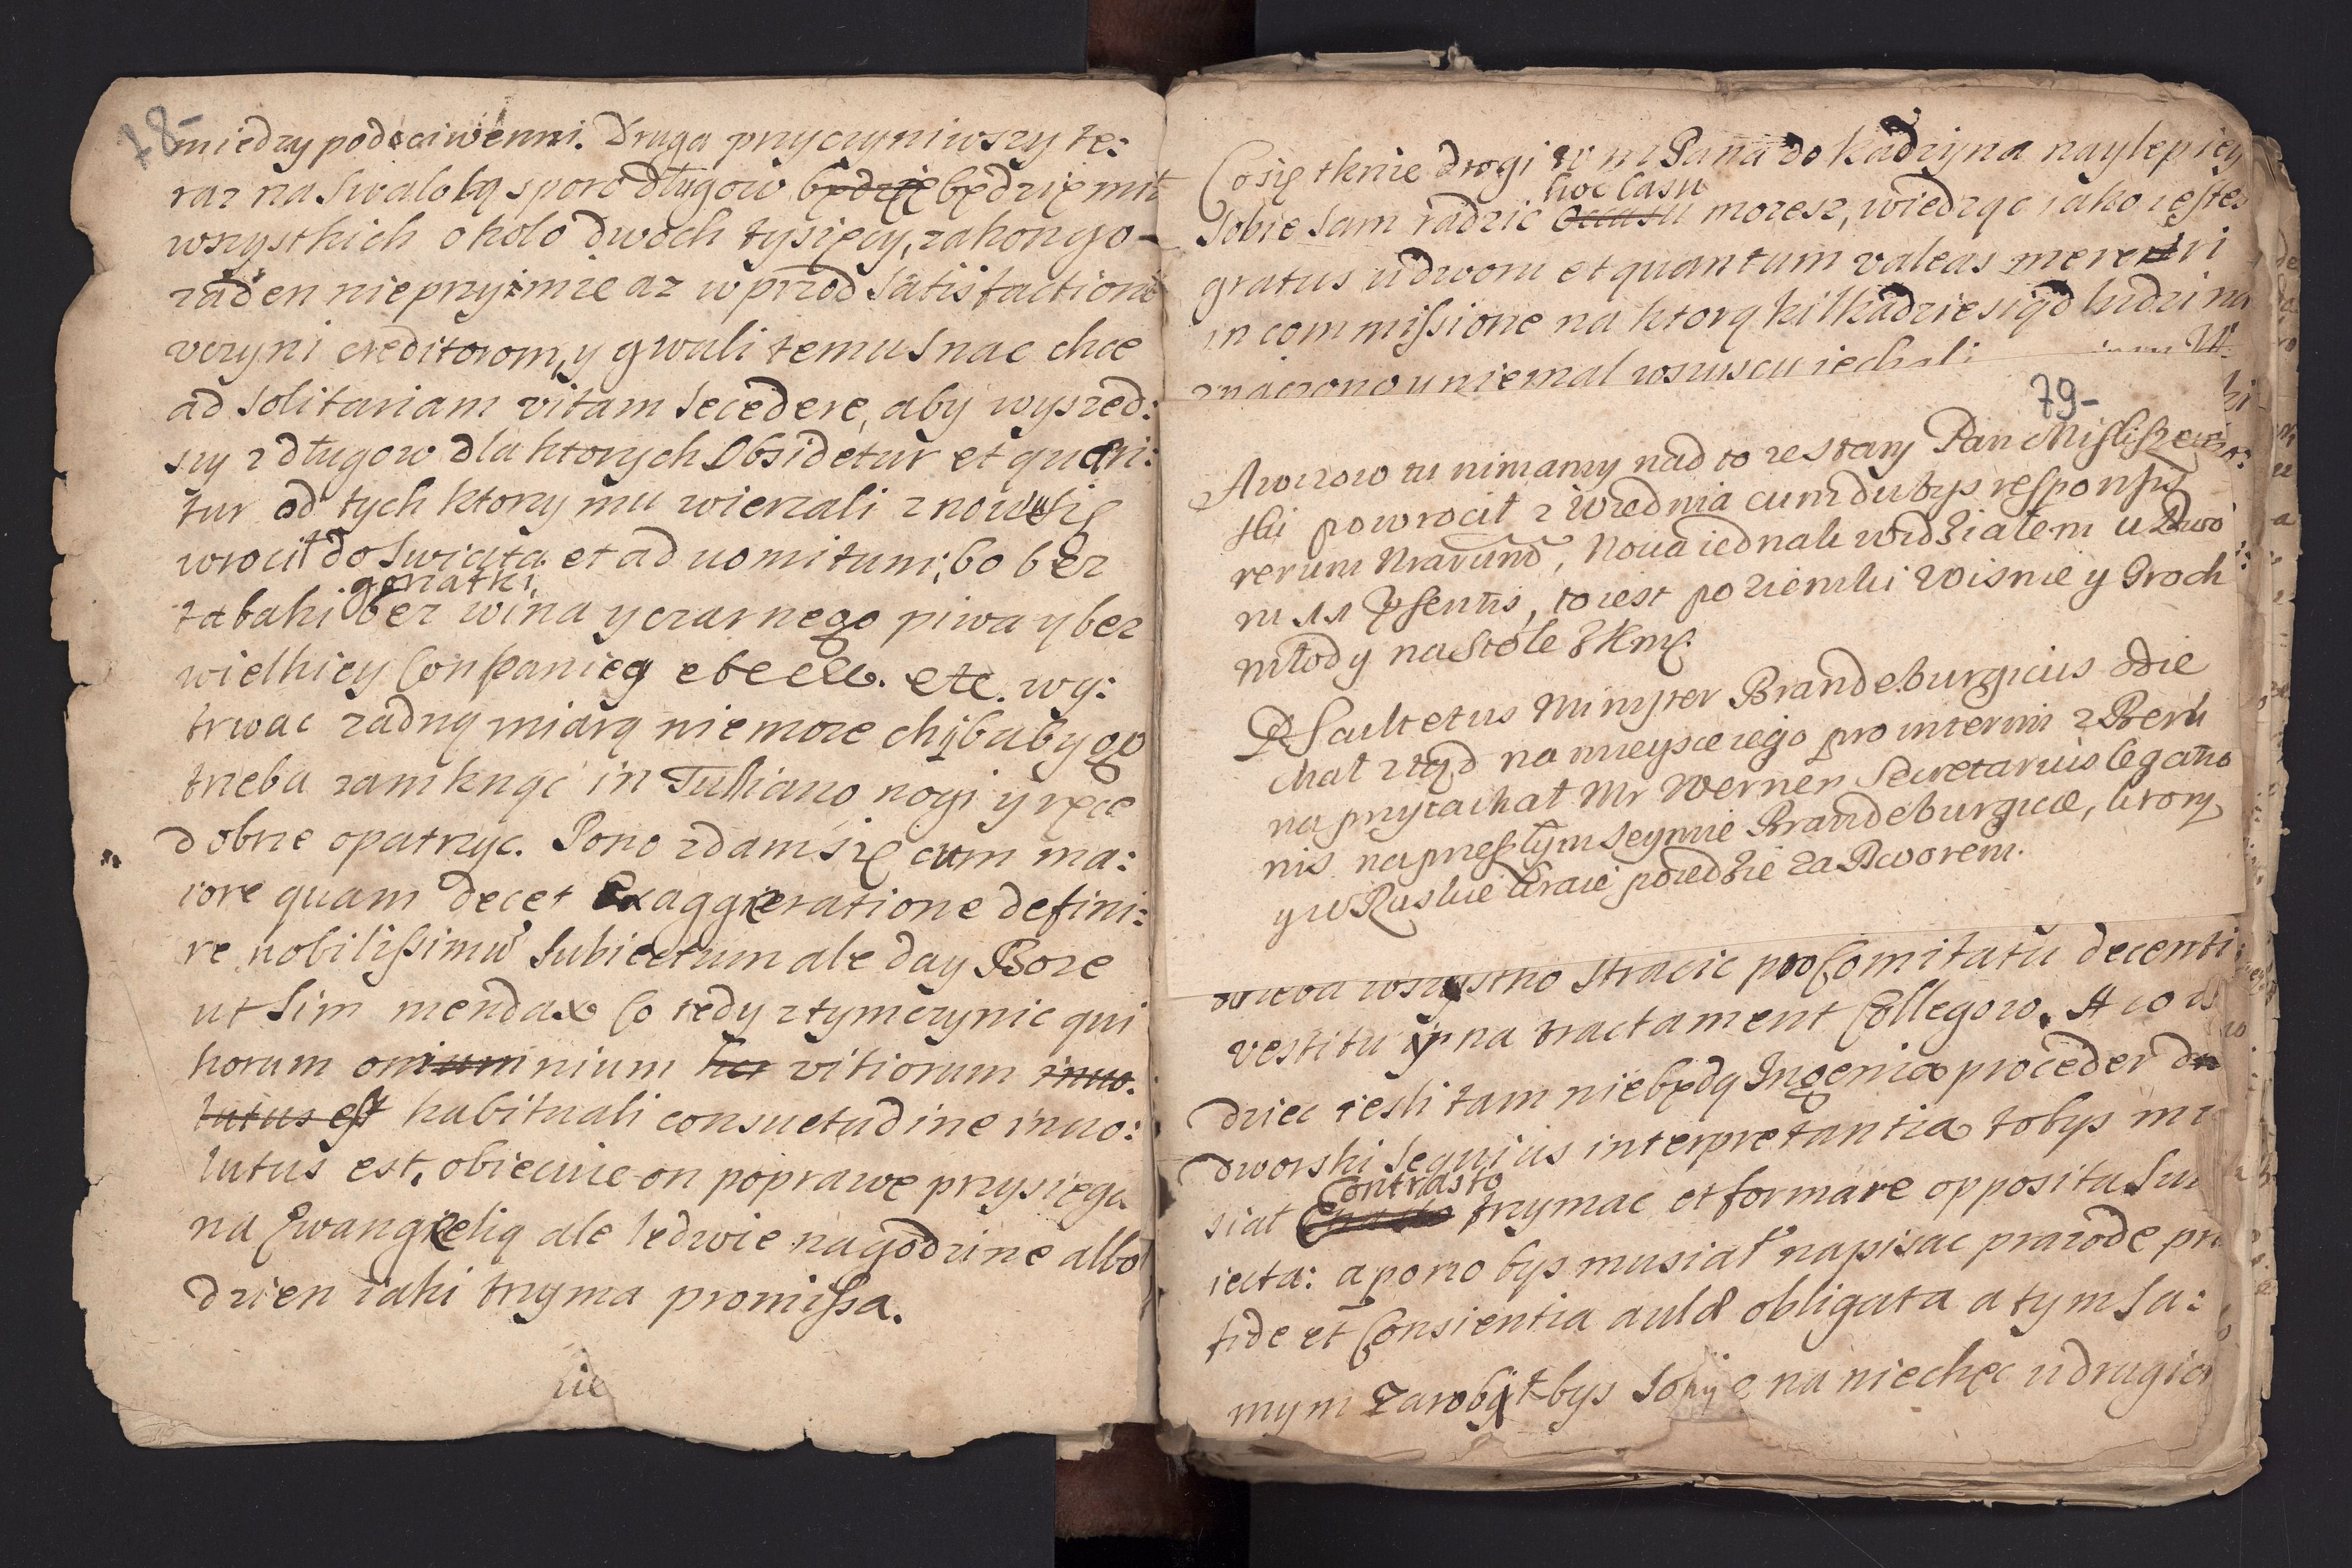 78-
miedzy podsciwemi. Druga przyczyniwszy te:
raz na Swalolą sporo długow będzię będzię miał
wszystkich okolo dwoch tysięcy, zakon go-
zaden nie przyimie az w przod Satisfactionē
vczyni creditorom, y gwuli temu Snac chce
ad Solitariam vitam Secedere, aby wyszed:
szy z długow dla ktorych Obsidetur et quæri:
tur od tych ktorzy mu wierzali znowu się
wrocił do Swiata et ad uomitum; bo bez
gorzałki,
tabaki bez wina y czarnego piwa y bez
wielkiey Conpaniey etc etc. etc. wy:
trwac zadną miarą niemoze chÿbaby go
trzeba zamknąc in Tulliano nogi y ręce
dobrze opatrzyc. Pono zdam się cum ma:
iore quam decet Exaggeratione defini:
re nobilissimū Subiectum ale day Boze
ut Sim mendax Co tedy z tym czynic qui
horum omnium nium vitiorum inuo:
lutus est habituali consuetudine inuo:
lutus est, obiecuie on poprawe przysięga
na Ewangielią ale ledwie na godzine albo
dzien iaki trzyma promissa.
Co się tknie drogi W M Pana do Kadzyna naylepiey
hoc Casu
Sobie Sam radzic mozesz, wiedząc iako iestes
gratus u dworu et quantum valeas mereri
in commissione na ktorą kilkadziesiąd ludzi na
znaczono u niemal wszyscy iechali
79-
Awizow tu nimamy nad to ze Stary Pan Misliszew
ski powrocił z Wiednia cum dubys responsis
rerum Nrarumd, Nova iednak widziałem u Dwo
ru 11 Psentis, to iest poziemki Wisnie y Groch
młody na Stole JKmć.
P. Scultetus Minister Brandeburgicus odie
chał ztąd na mieysce iego pro interim z Berli
na przyiachał Mr Werner Secretarius legatio
nis na przeszłym Seymie Brandeburgicæ, ktory
y w Ruskie kraie poiedzie za Dworem.
trzeba wszystko stracic pro Comitatu decenti
vestitu y na tractament Collegow. A co
dziec iesli tam niebędą Ingenia proceder
dworski Sequius interpretantia tobys mu
Contrasto
siał trzymac et formare opposita Sub
iecta: a pono bys musiał napisac prawde
fide et Consientia aulæ obligata a tym Sa:
mym Zarobiłbys Sobie na niechęc u drugich